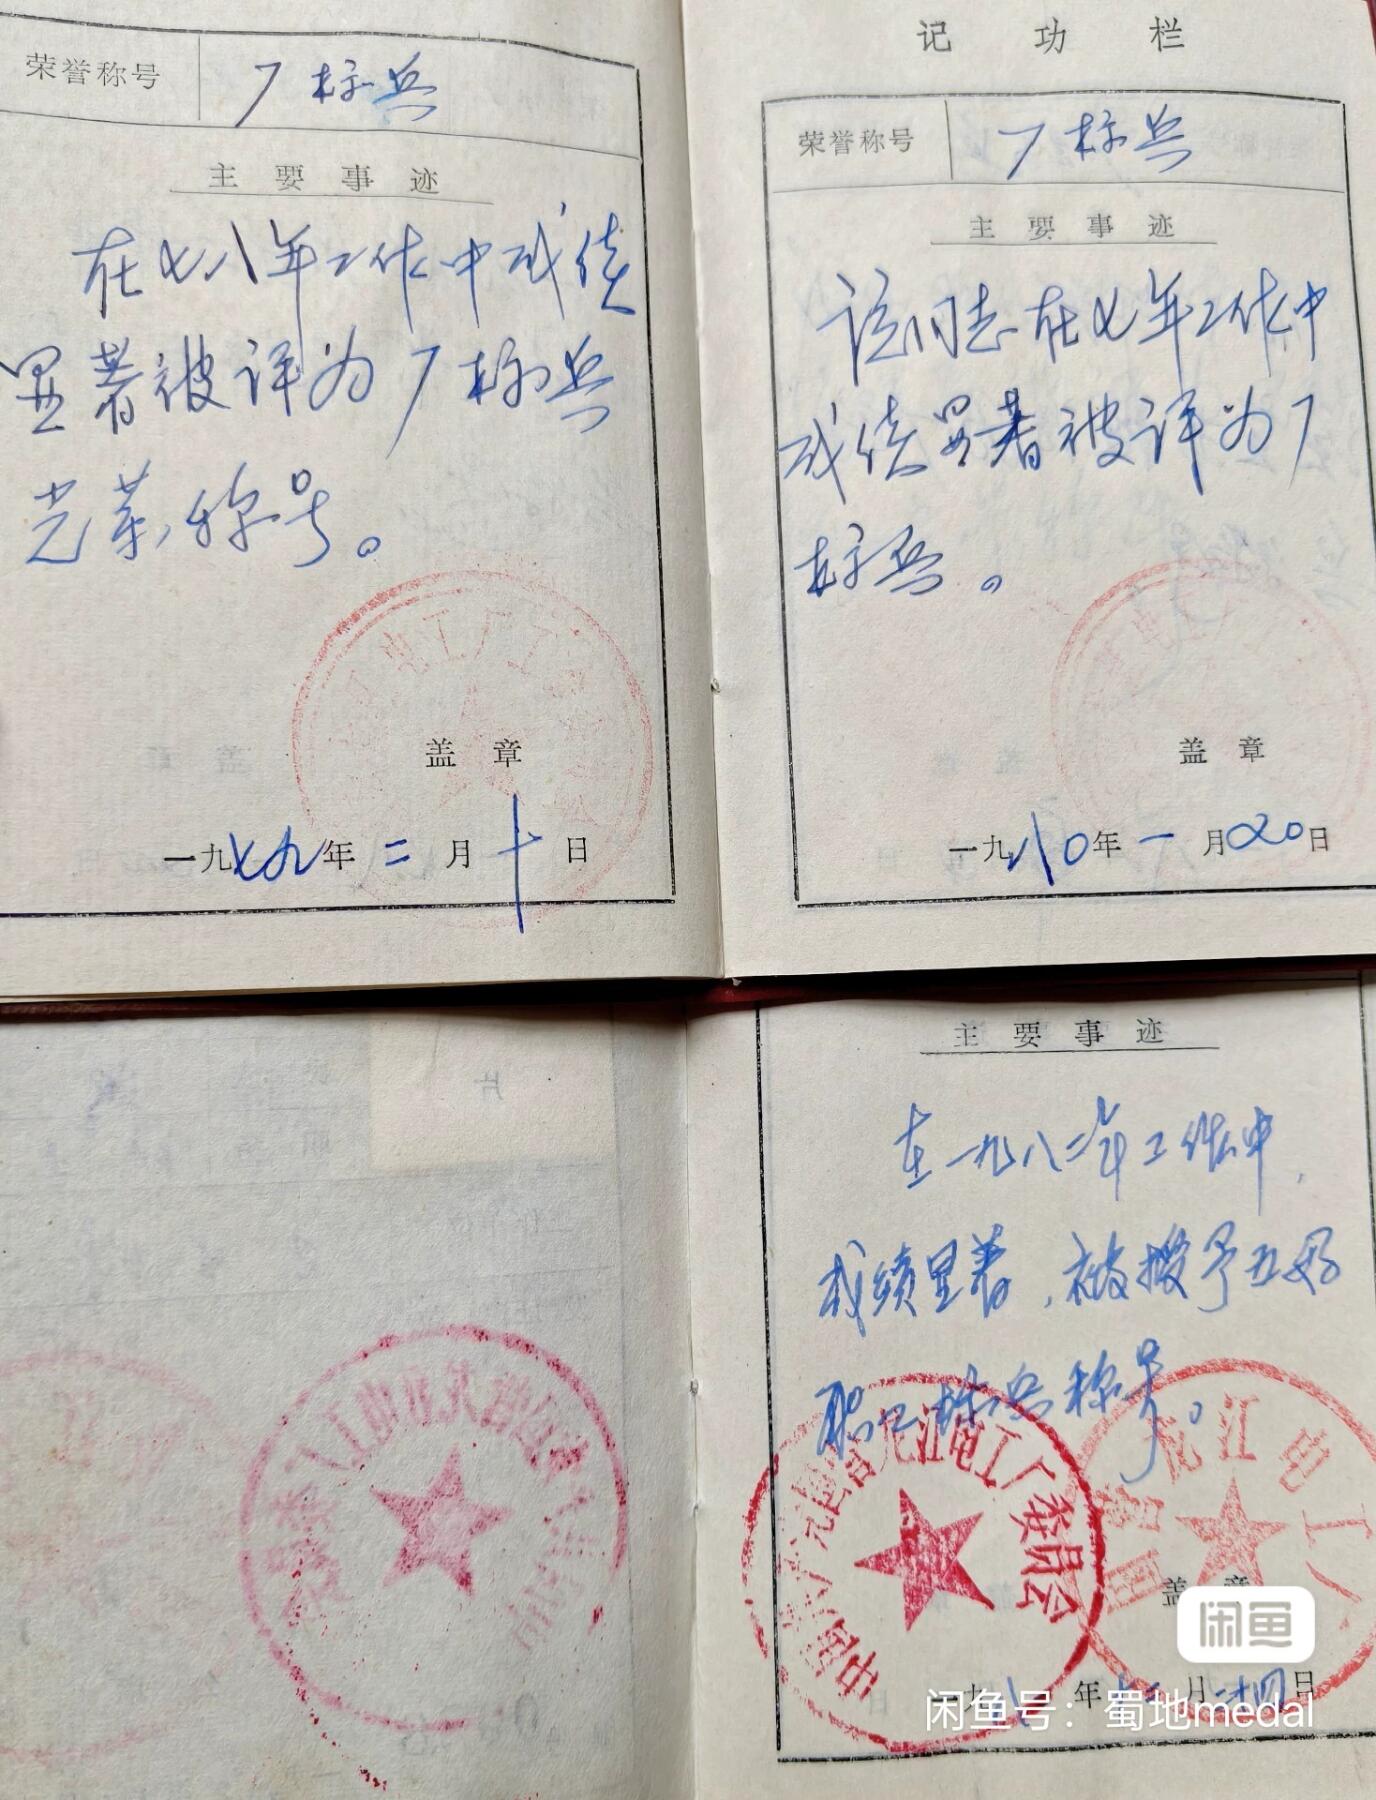 荣誉称号 厂标兵
主要事迹
在七八年工作中成绩
显著被评为厂标兵
光荣称号。
电工厂工
盖章
一九七九年二月十日
记功栏
荣誉称号 厂标兵
主要事迹
该同志在七年工作中
成绩显著被评为厂
标兵。
盖章
一九八〇年一月20日
主要事迹
在一九八二年工作中，
成绩显著，被授予五好
职工标兵称号。
龙江电工厂委员会
中国
国营龙江电工厂
盖章
一九八 年十二月二十四日
闲鱼
闲鱼号：蜀地medal